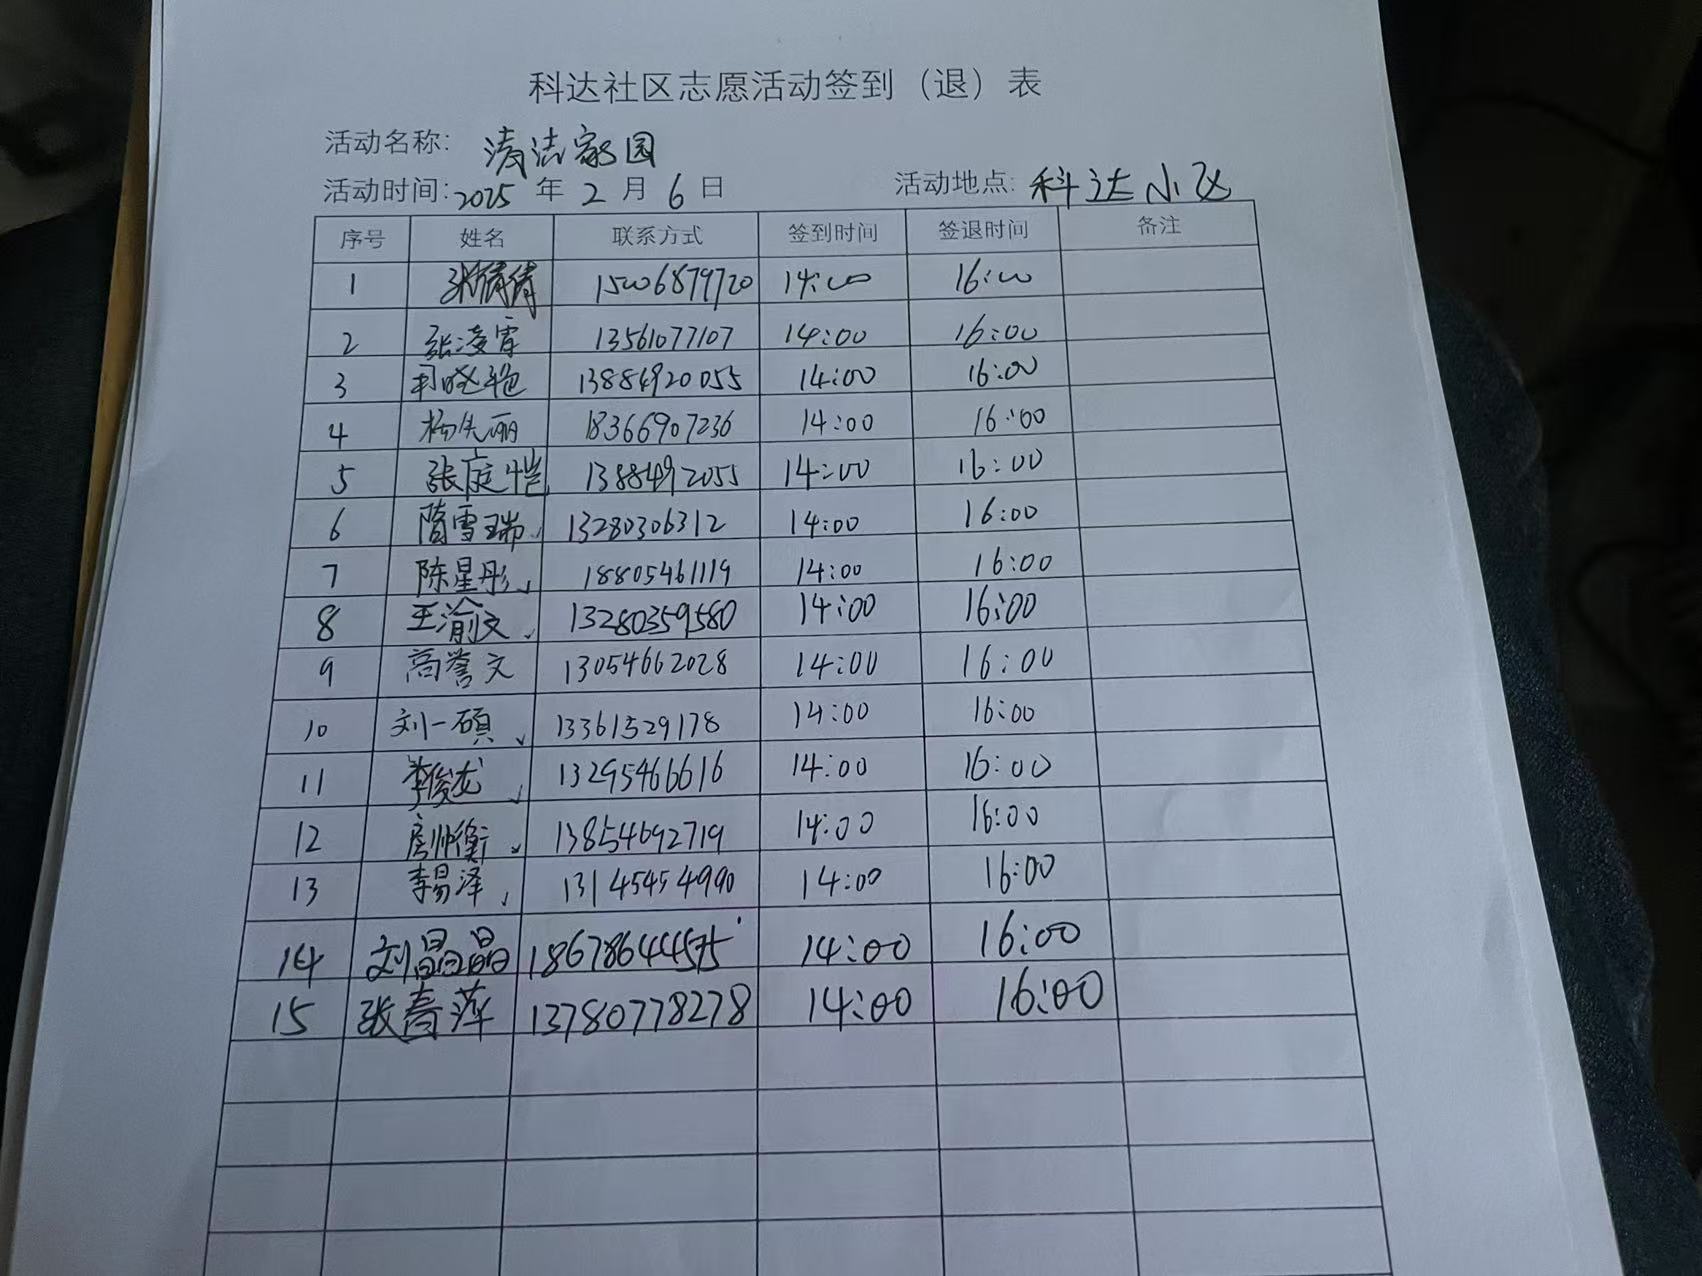 科达社区志愿活动签到（退）表
活动名称: 清洁家园
活动时间: 2025 年 2 月 6 日 活动地点: 科达小区
序号 姓名 联系方式 签到时间 签退时间 备注
1 张倩倩 15006879720 14:00 16:00
2 张凌霄 13561077107 14:00 16:00
3 13884920055 14:00 16:00
4 杨先丽 18366907236 14:00 16:00
5 张庭恺 1388492055 14:00 16:00
6 隋雪瑞 13280306312 14:00 16:00
7 陈星彤 18805461119 14:00 16:00
8 王渝文 13280359580 14:00 16:00
9 高誉文 13054662028 14:00 16:00
10 刘一硕 13361529178 14:00 16:00
11 李俊龙 13295466616 14:00 16:00
12 房帅衡 13854692719 14:00 16:00
13 李易泽 13145454990 14:00 16:00
14 刘晶晶 14:00 16:00
15 张春萍 13780778278 14:00 16:00